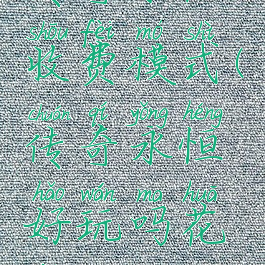 shōu fèi mó shì
收费模式(
chuán qí yǒng héng
传奇永恒
hǎo wán ma huā
好玩吗花